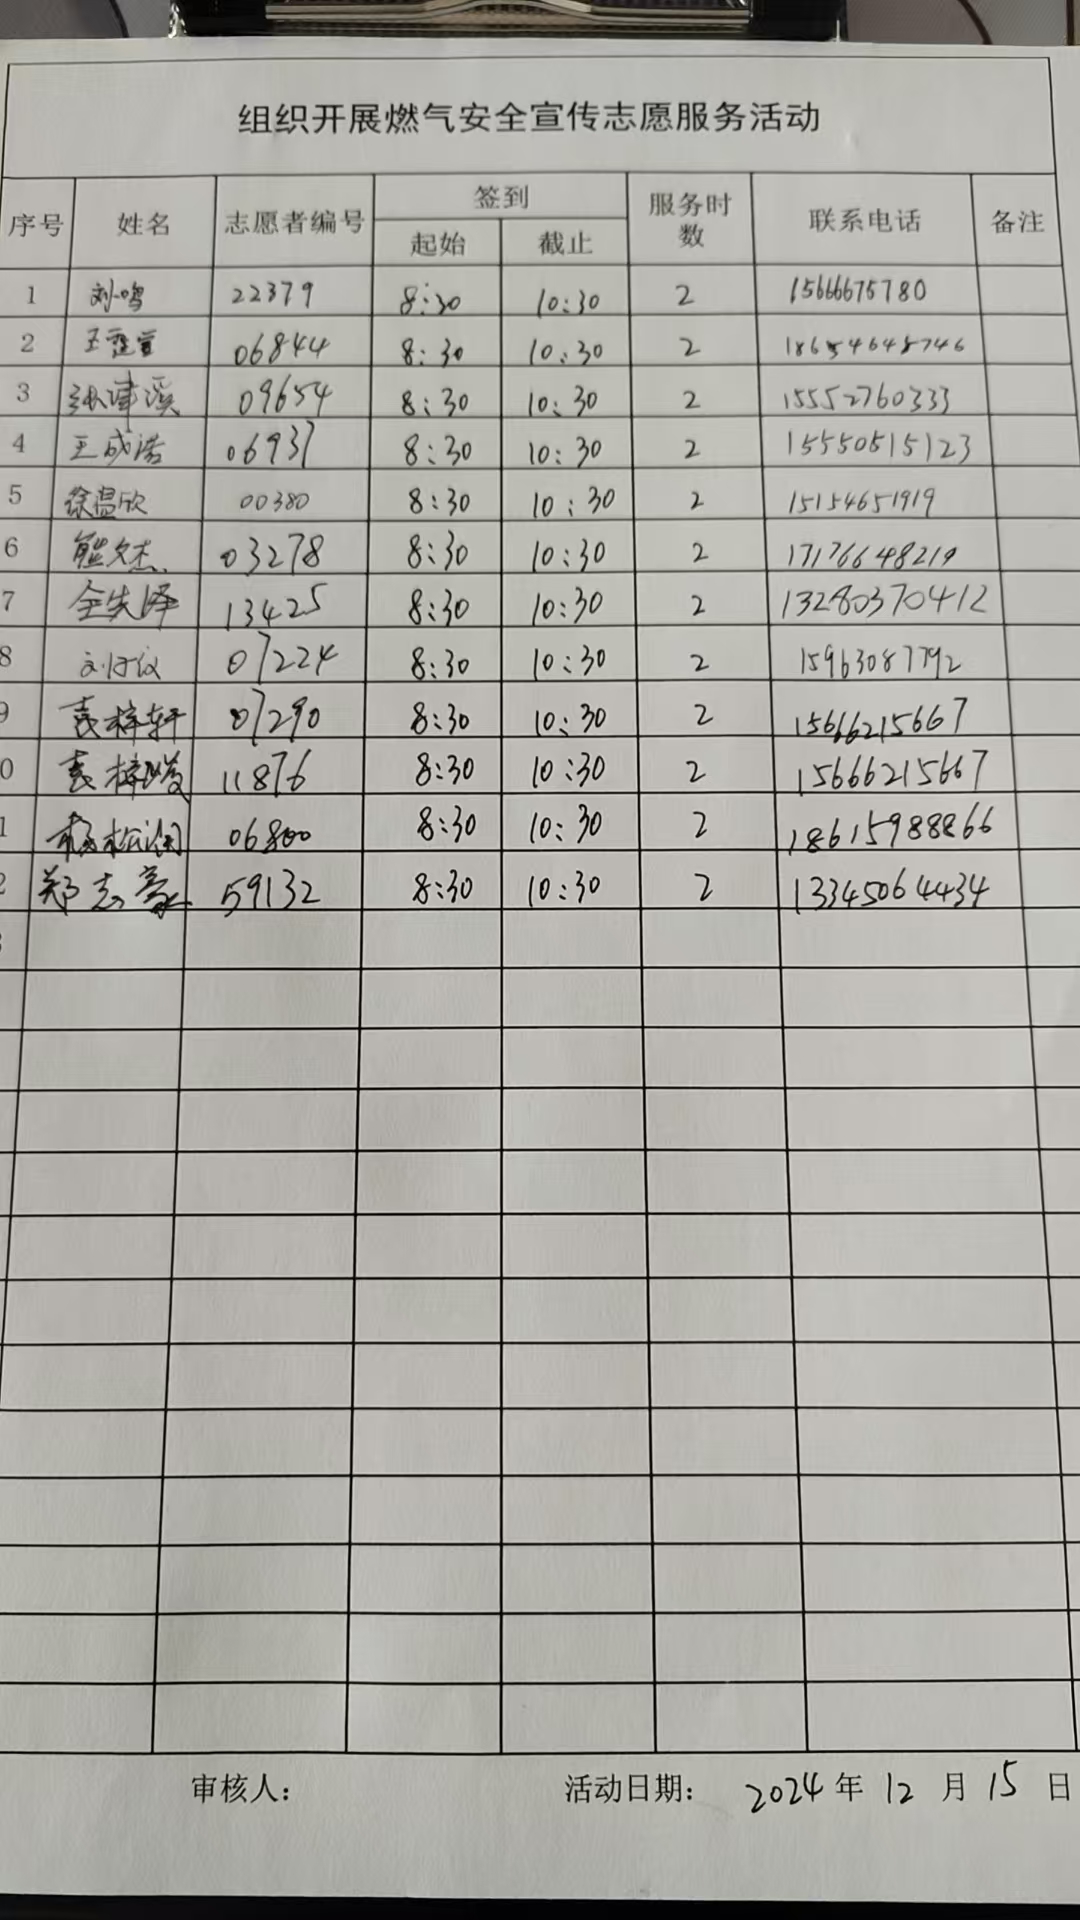 组织开展燃气安全宣传志愿服务活动
序号 姓名 志愿者编号 签到 起始 截止 服务时数 联系电话 备注
1 刘鸣 22379 8:30 10:30 2 15666675780
2 王 06844 8:30 10:30 2 18654648746
3 张津溪 09654 8:30 10:30 2 15552760333
4 王成浩 06937 8:30 10:30 2 15550515123
5 徐温欣 00380 8:30 10:30 2 15154651919
6 熊文杰 03278 8:30 10:30 2 17176648219
7 全先泽 13425 8:30 10:30 2 13280370412
8 刘 07224 8:30 10:30 2 15963087792
9 袁梓轩 07290 8:30 10:30 2 15666215667
0 袁梓峻 11876 8:30 10:30 2 15666215667
1 杨松润 06800 8:30 10:30 2 18615988866
2 郑志豪 59132 8:30 10:30 2 13345064434
审核人: 活动日期: 2024 年 12 月 15 日